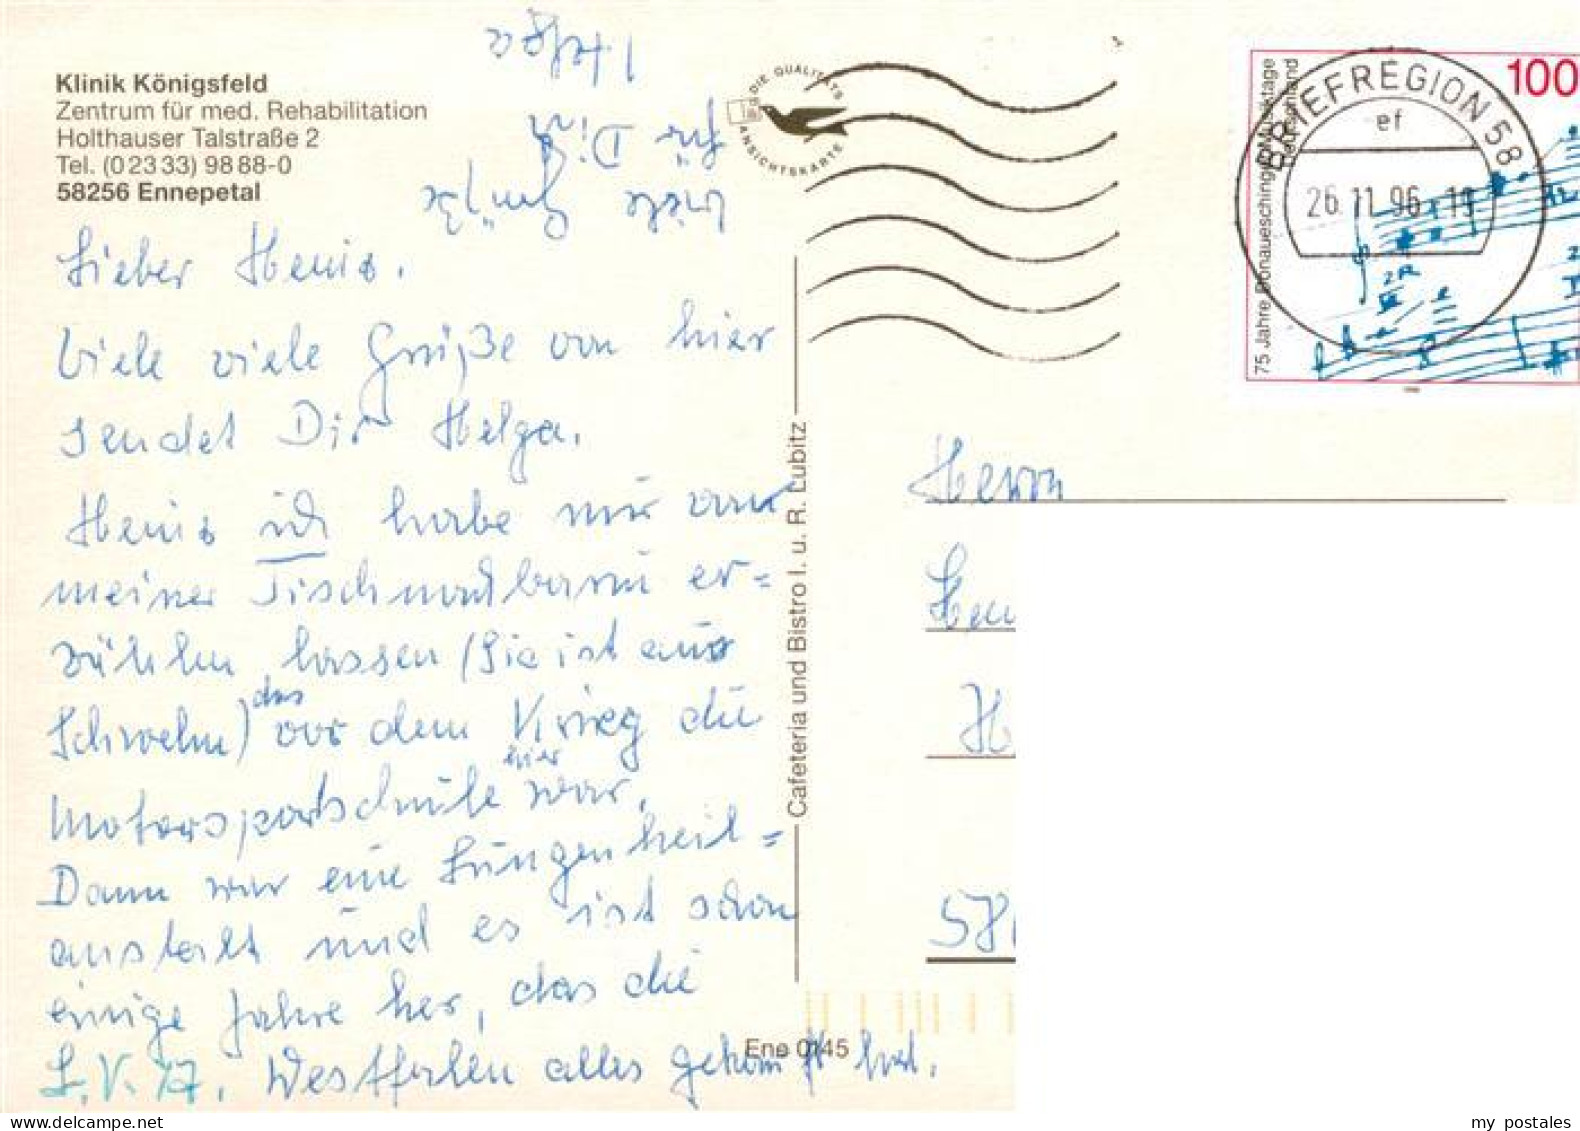 Klinik Königsfeld
Zentrum für med. Rehabilitation
Holthauser Talstraße 2
Tel. (0 23 33) 98 88-0
58256 Ennepetal
Viele Grüße
für Dich
Helga
Lieber Heniz.
Viele viele Grüße von hier
sendet Dir Helga.
Heniz ich habe mir von
meiner Tischnachbarin er=
zählen lassen (Sie ist aus
Schwelm) das vor dem Krieg die
Motorsportschule hier war.
Dann war eine Lungenheil=
anstalt und es ist schon
einige Jahre her, das die
L.V.A. Westfalen alles gekauft hat.
Cafeteria und Bistro I. u. R. Lubitz
Ene 0145
DIE QUALITÄTS
ANSICHTSKARTE
BRIEFREGION 58
ef
26.11.96-19
100
75 Jahre Donaueschinger Musiktage
Deutschland
Herrn
H
58
my postales